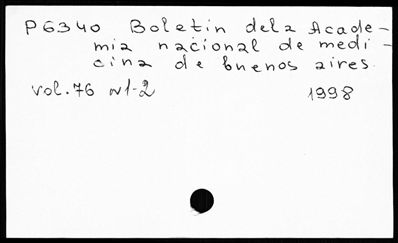 P6340 Boletin dela Acade-
mia nacional de medi-
cina de buenos aires.
vol. 76 N1-2 1998